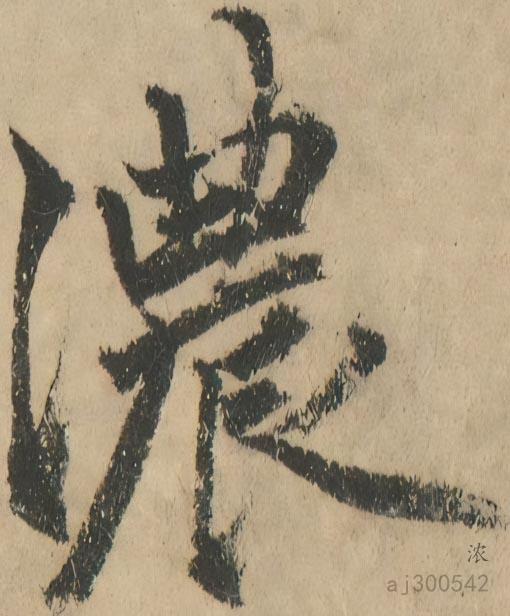 濃
浓
aj300542